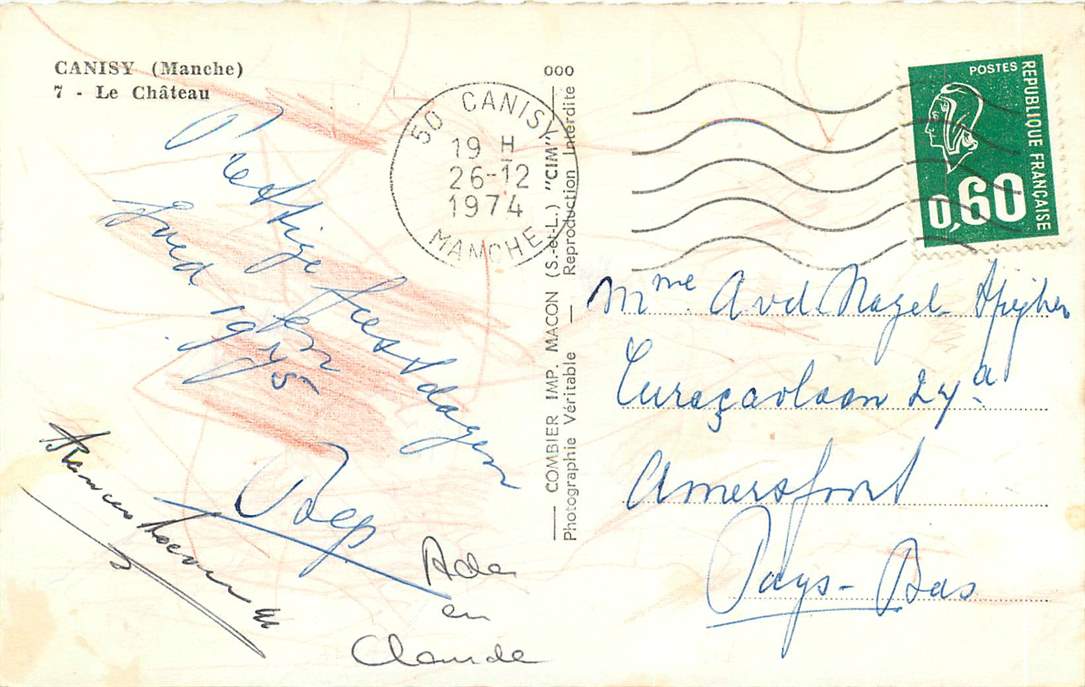 CANISY (Manche)
7 - Le Château
Prettige feestdagen
en
goed 1975
Joep
Ada
en
Claude
COMBIER IMP. MACON (S.-et-L.) "CIM"
Photographie Véritable — Reproduction Interdite
000
50 CANISY
19 H
26-12
1974
MANCHE
POSTES
REPUBLIQUE FRANÇAISE
0,60
Mme A v d Nagel
Curaçaolaan 27a
Amersfoort
Pays-Bas